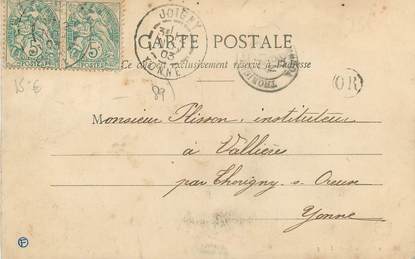 JOIGNY
03
YONNE
CARTE POSTALE
Ce côté est exclusivement réservé à l'adresse
5 5
POSTES POSTES
15 €
89
OR
Monsieur Plisson, instituteur
à Vallières
par Thorigny s. Oreuse
Yonne